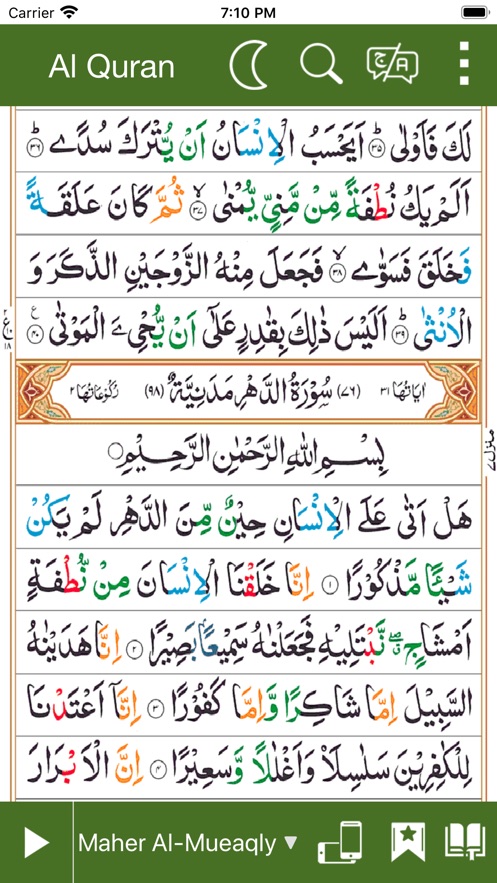 Carrier 7:10 PM
Al Quran
لَكَ فَاَوْلٰى ۳۵ اَيَحْسَبُ الْاِنْسَانُ اَنْ يُّتْرَكَ سُدًى ۳۶
اَلَمْ يَكُ نُطْفَةً مِّنْ مَّنِيٍّ يُّمْنٰى ۳۷ ثُمَّ كَانَ عَلَقَةً
فَخَلَقَ فَسَوّٰى ۳۸ فَجَعَلَ مِنْهُ الزَّوْجَيْنِ الذَّكَرَ وَ
الْاُنْثٰى ۳۹ اَلَيْسَ ذٰلِكَ بِقٰدِرٍ عَلٰٓى اَنْ يُّحْيِۦَ الْمَوْتٰى ۴۰
اٰيَاتُهَا ۳۱ (۷۶) سُوْرَةُ الدَّهْرِ مَدَنِيَّةٌ (۹۸) رُكُوْعَاتُهَا ۲
بِسْمِ اللهِ الرَّحْمٰنِ الرَّحِيْمِ
هَلْ اَتٰى عَلَى الْاِنْسَانِ حِيْنٌ مِّنَ الدَّهْرِ لَمْ يَكُنْ
شَيْـًٔا مَّذْكُوْرًا ۱ اِنَّا خَلَقْنَا الْاِنْسَانَ مِنْ نُّطْفَةٍ
اَمْشَاجٍ نَّبْتَلِيْهِ فَجَعَلْنٰهُ سَمِيْعًاۢ بَصِيْرًا ۲ اِنَّا هَدَيْنٰهُ
السَّبِيْلَ اِمَّا شَاكِرًا وَّاِمَّا كَفُوْرًا ۳ اِنَّآ اَعْتَدْنَا
لِلْكٰفِرِيْنَ سَلٰسِلَا۟ وَاَغْلٰلًا وَّسَعِيْرًا ۴ اِنَّ الْاَبْرَارَ
Maher Al-Mueaqly